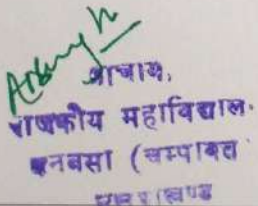 प्राचार्य,
राजकीय महाविद्याल
बनबसा (चम्पावत